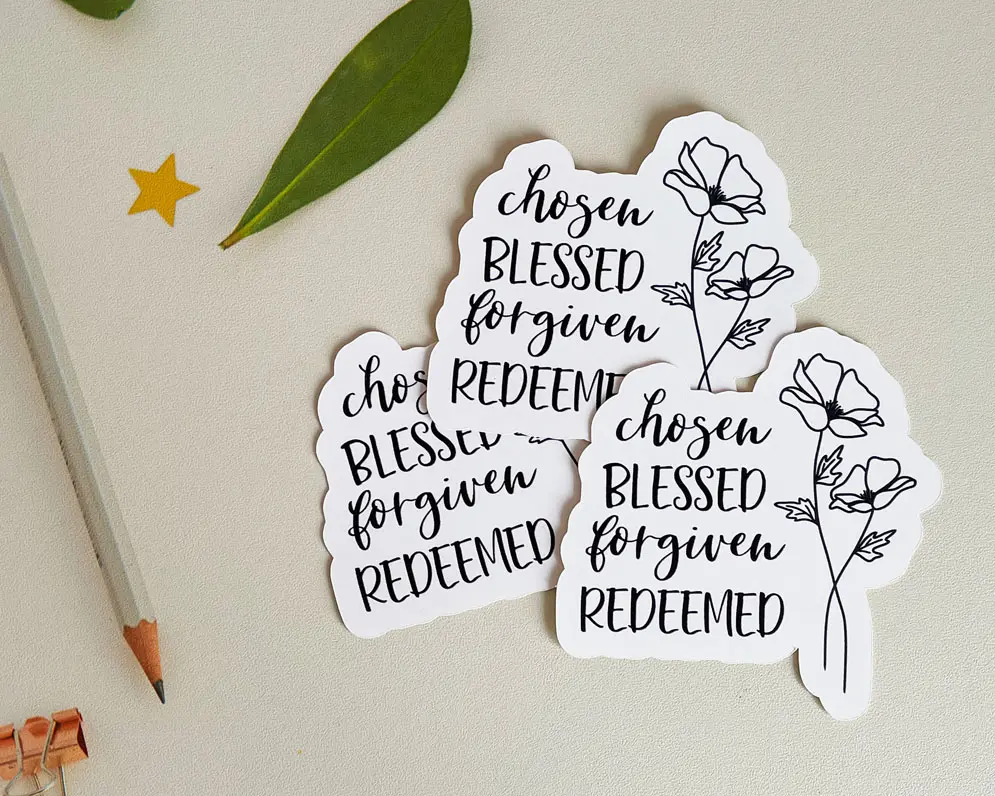 chosen
BLESSED
forgiven
REDEEMED
BLESSED
forgiven
REDEEMED
chosen
BLESSED
forgiven
REDEEMED